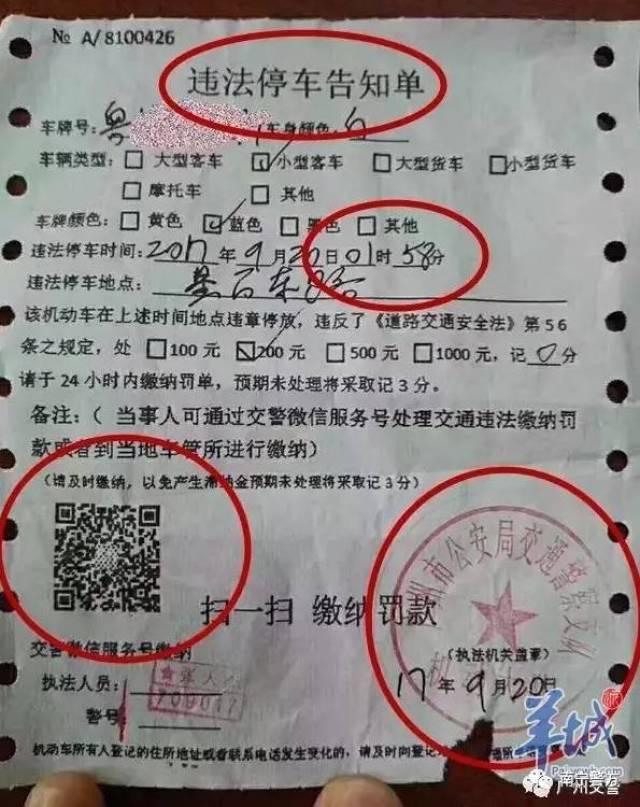 № A/8100426
违法停车告知单
车牌号：粤 车身颜色：白
车辆类型： 大型客车 小型客车 大型货车 小型货车
摩托车 其他
车牌颜色： 黄色 蓝色 黑色 其他
违法停车时间：2017年9月20日01时58分
违法停车地点：
该机动车在上述时间地点违章停放，违反了《道路交通安全法》第56
条之规定，处 100元 200元 500元 1000元，记0分
请于24小时内缴纳罚单，预期未处理将采取记3分。
备注：（ 当事人可通过交警微信服务号处理交通违法缴纳罚
款或者到当地车管所进行缴纳）
（请及时缴纳，以免产生滞纳金预期未处理将采取记3分）
州市公安局交通警察支队
扫一扫 缴纳罚款
交警微信服务号缴纳
（执法机关盖章）
执法人员：
17年9月20日
警号：
机动车所有人登记的住所地址或者联系电话发生变化的，请及时向登记
羊城
南宁警方
广州交警